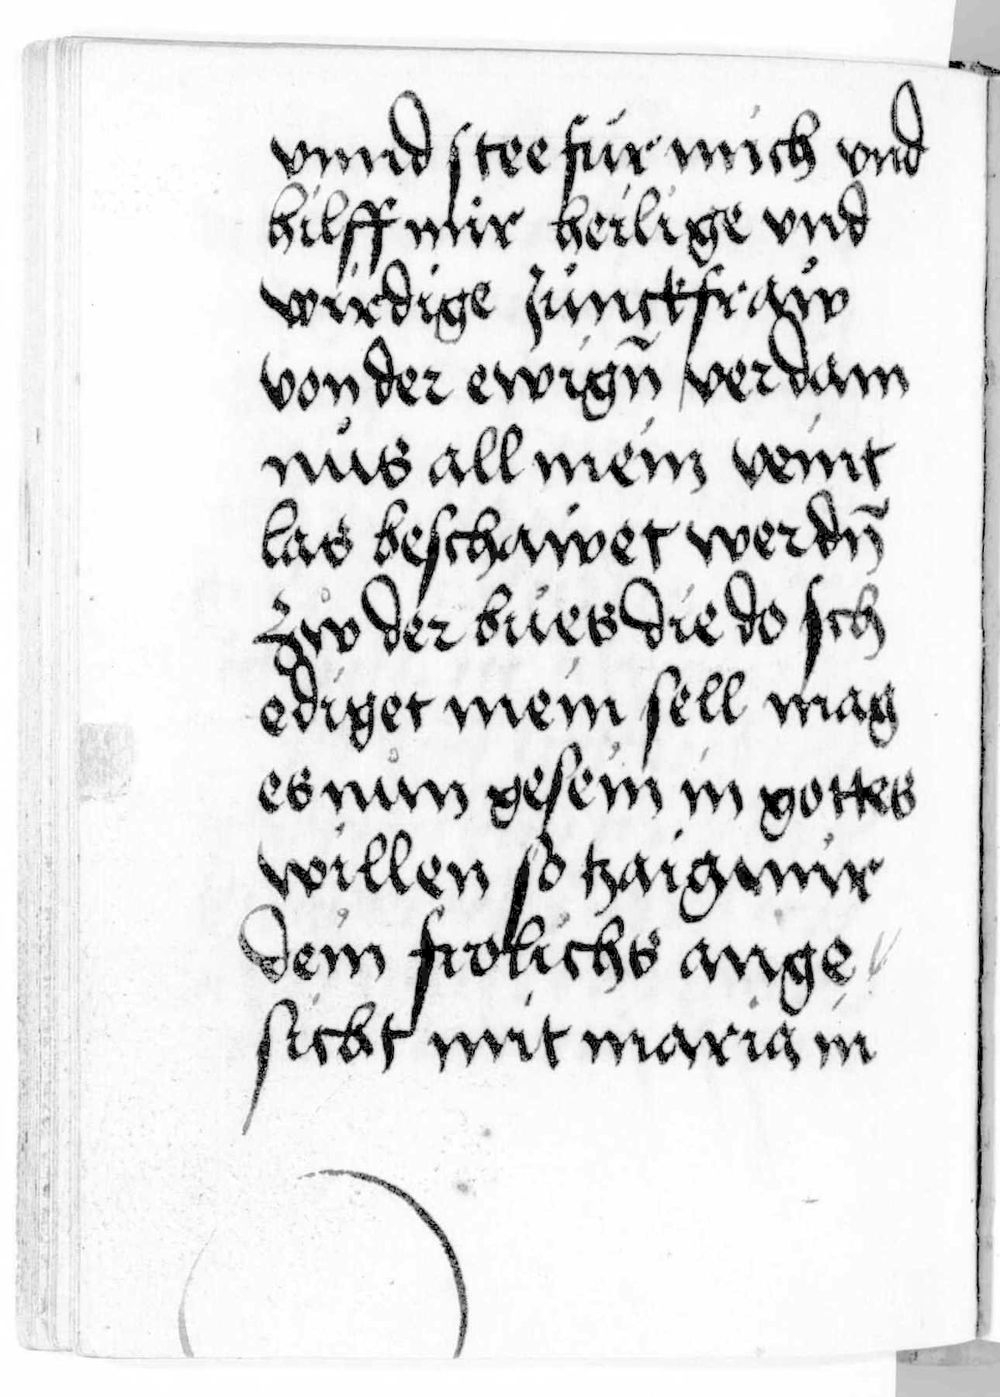 vnnd stee fur mich vnd
hilff mir heilige vnd
wirdige Junckfraẘ
von der ewign̄ verdam
nůs all mein veint
las beschawet werdn̄
zẘ der bues die do sch
ediget mein sell mag
es nůn gesein in gottes
willen so tzaig mir
dein frolichs ange
sicht mit maria in